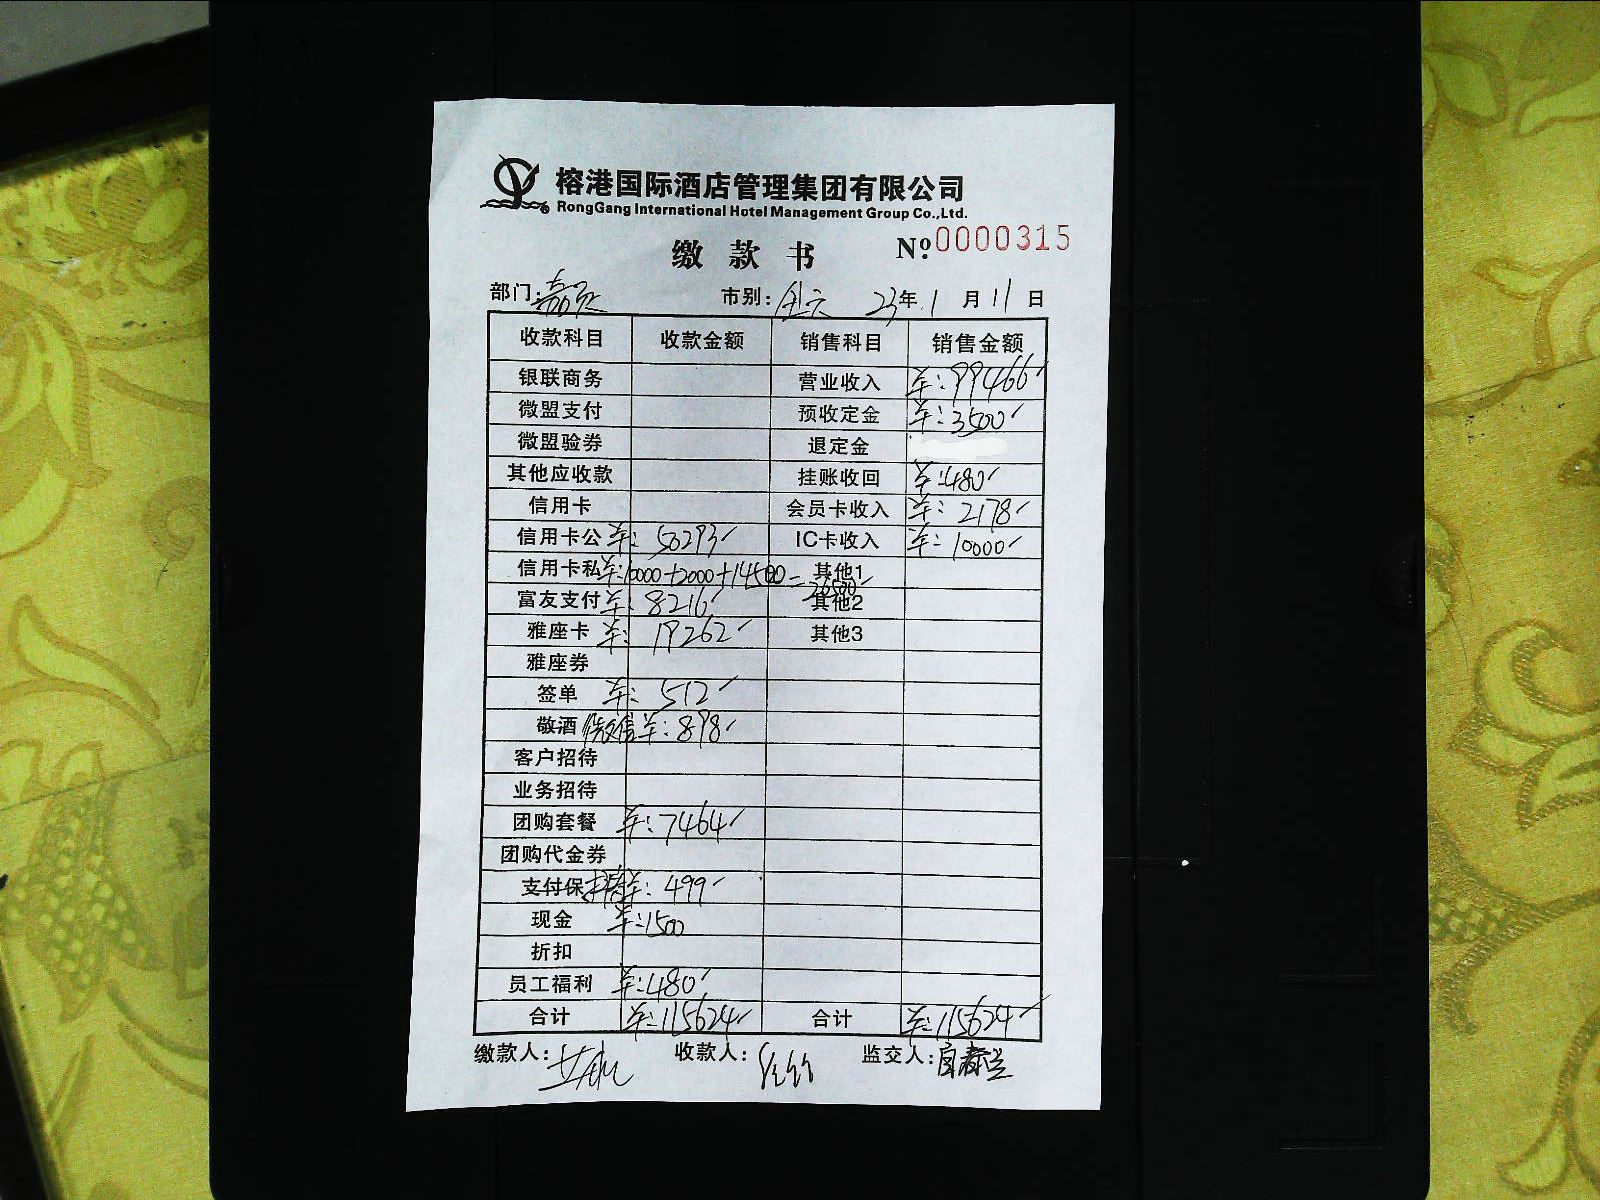 榕港国际酒店管理集团有限公司
RongGang International Hotel Management Group Co.,Ltd.
缴款书 №:0000315
部门: 市别: 23年1月11日
收款科目 收款金额 销售科目 销售金额
银联商务 营业收入 ¥:99466
微盟支付 预收定金 ¥:3500
微盟验券 退定金
其他应收款 挂账收回 ¥:480
信用卡 会员卡收入 ¥:2178
信用卡公 ¥:50293 IC卡收入 ¥:10000
信用卡私 ¥:10000+2000+14500=26500 其他1
富友支付 ¥:8216 其他2
雅座卡 ¥:19262 其他3
雅座券
签单 ¥:512
敬酒 微信 ¥:898
客户招待
业务招待
团购套餐 ¥:7464
团购代金券
支付保 ¥:499
现金 ¥:1500
折扣
员工福利 ¥:480
合计 ¥:115624 合计 ¥:115624
缴款人: 收款人: 监交人: